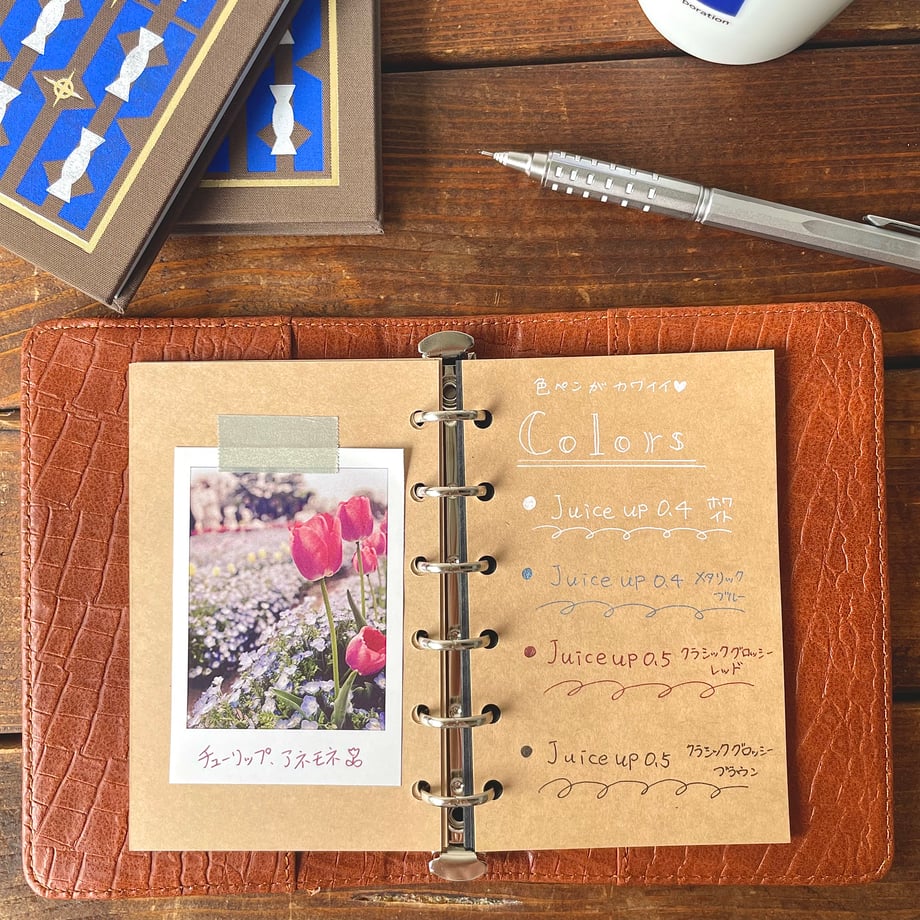 boration
色ペンがカワイイ♥
Colors
Juice up 0.4 ホワ
イト
Juice up 0.4 メタリック
ブルー
Juice up 0.5 クラシックグロッシー
レッド
Juice up 0.5 クラシックグロッシー
ブラウン
チューリップ、アネモネ